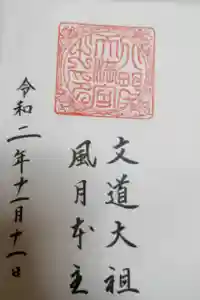 文道大祖
風月本主
令和二年十一月十一日